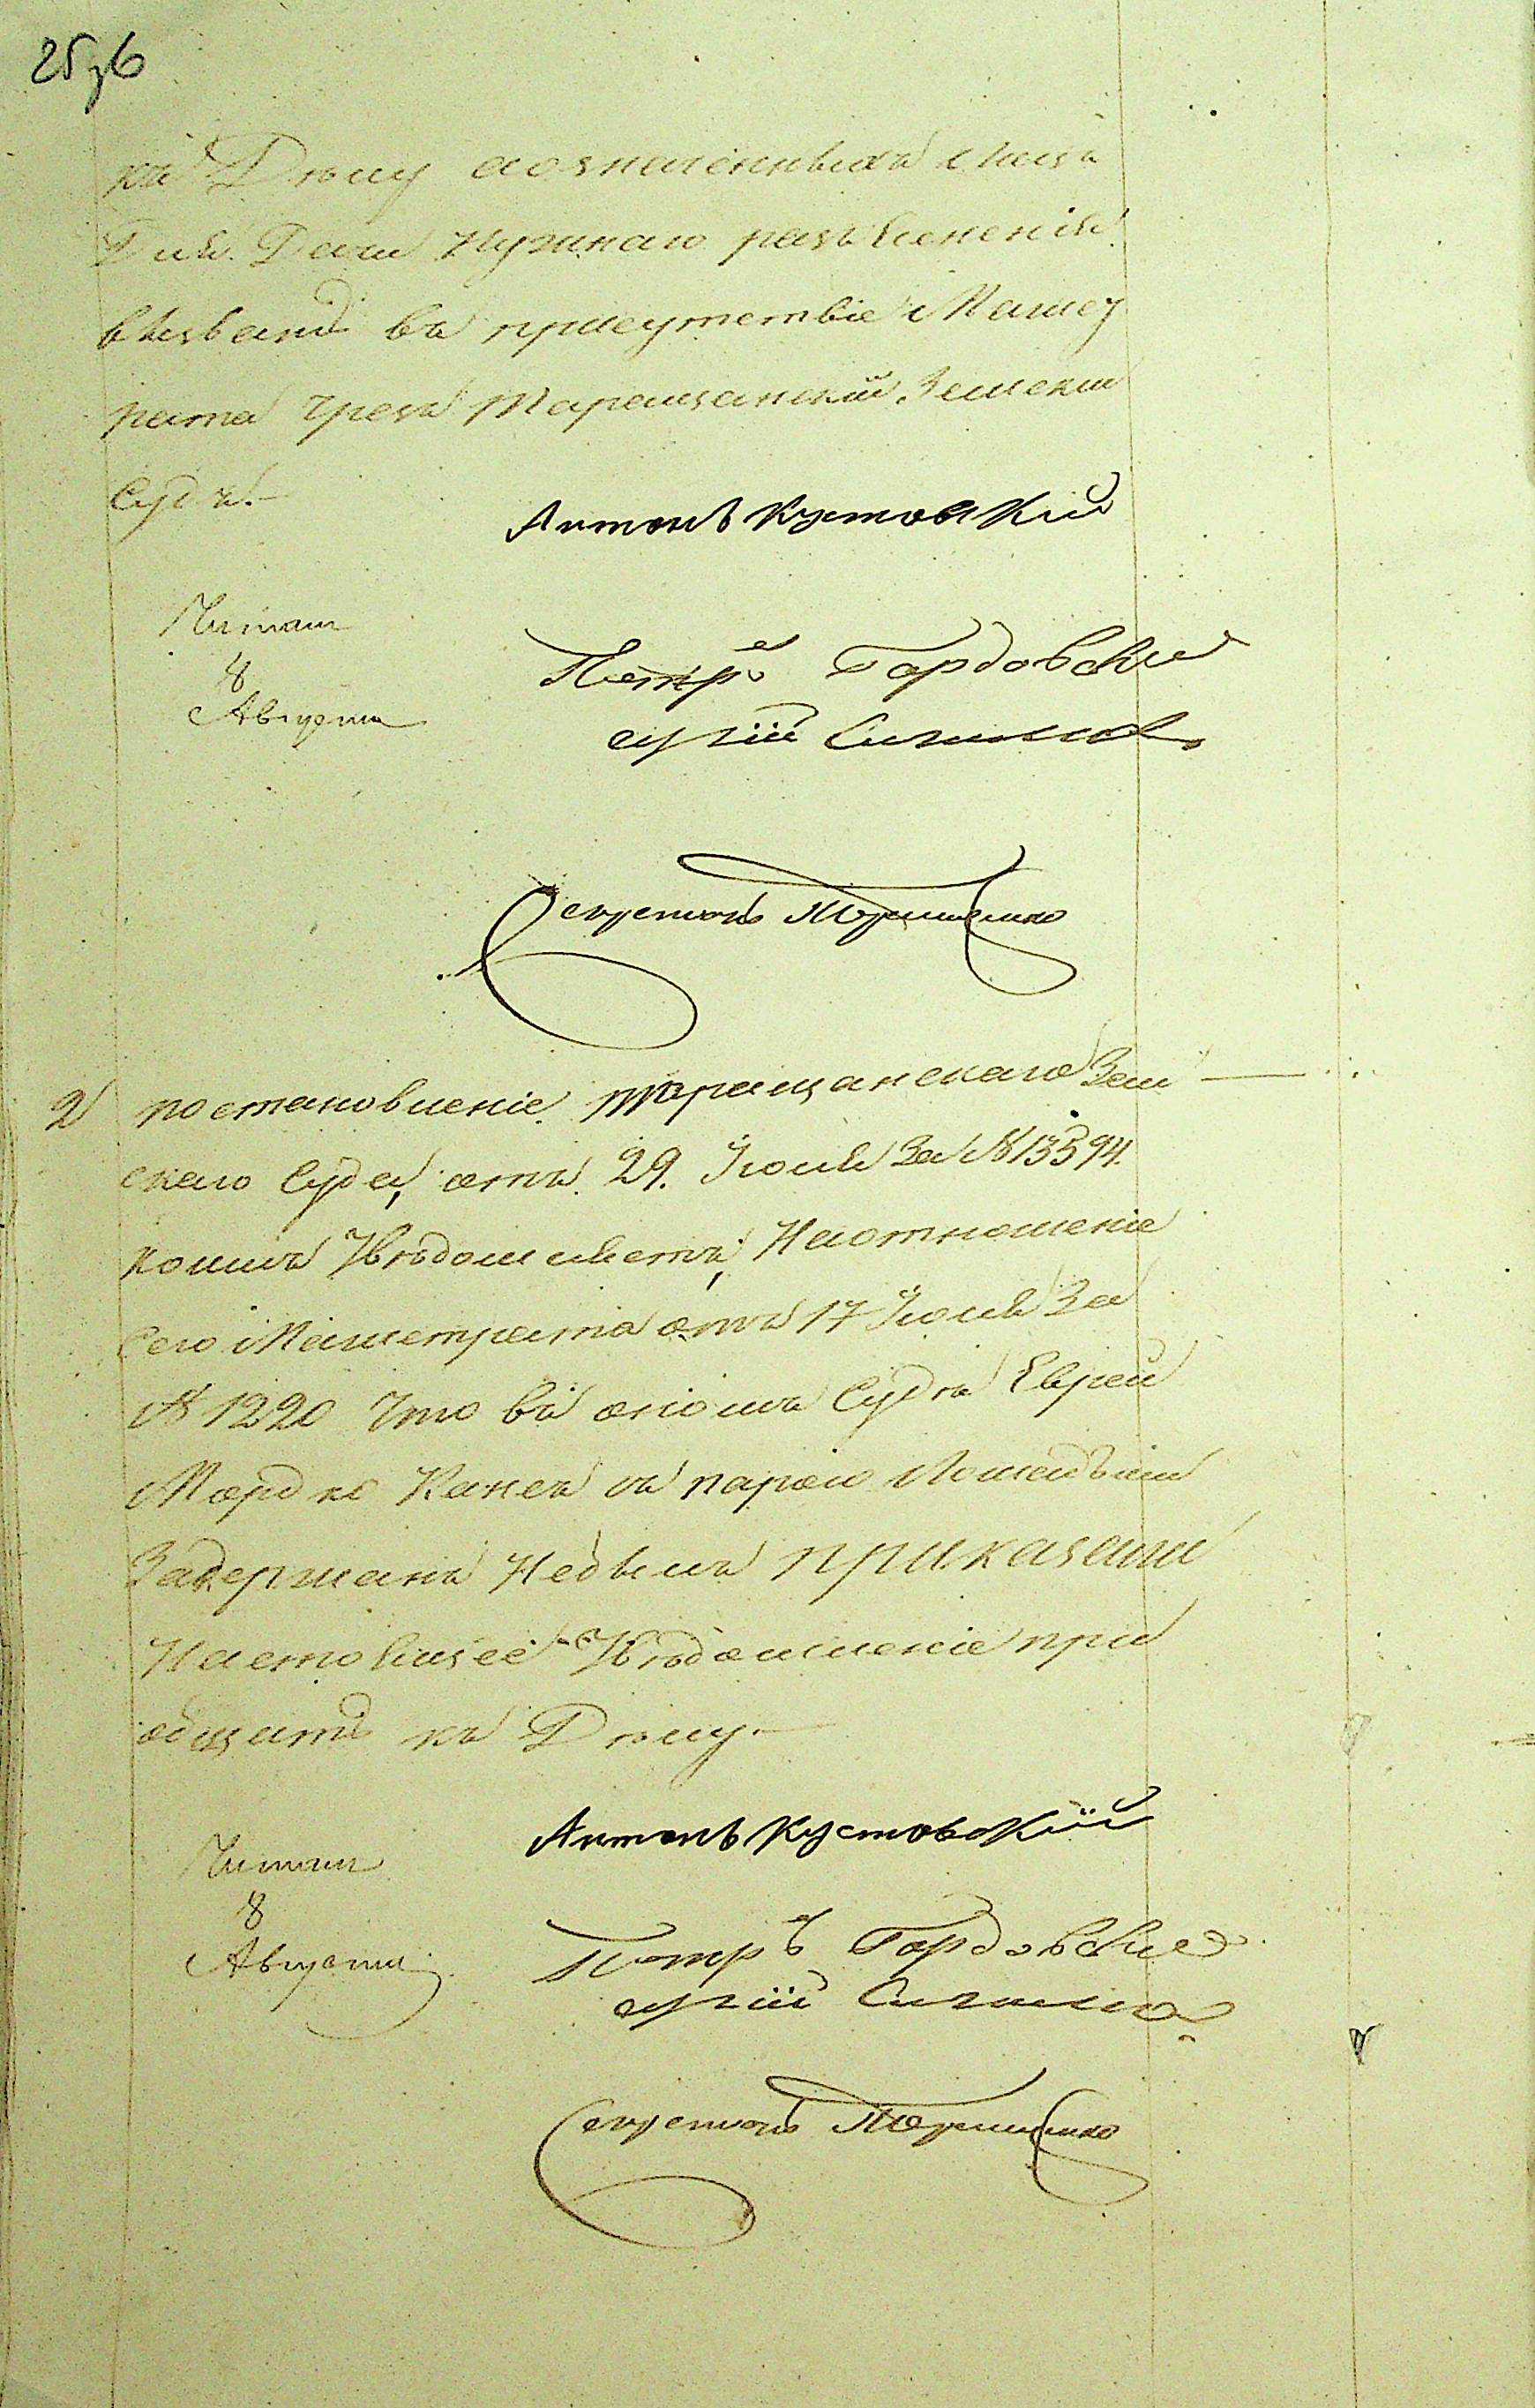 25 зв
къ Дѣлу аозначенныхъ лицъ
Для Дачи Нужнаго разъясненія
вызвать въ присутствіе Магист
рата чрезъ Таращанскій Земскій
Судъ.—
Антонъ Кустовскій
Читалъ
8
Августа
Петръ Гордовскій
Секретарь Терещенко
2) постановленіе Таращанскаго Зем
скаго Суда, отъ 29. Іюля За № 13594.
коимъ Увѣдомляетъ, На отношеніе
Сего Магистрата отъ 17 Іюля За
№ 1220 Что въ ономъ Судѣ Еврей
Мордко Канеъ съ парою Лошадьми
Задержанъ Небылъ приказали
Настоящее Увѣдомленіе при
общить къ Дѣлу.—
Антонъ Кустовскій
Читалъ
8
Августа
Петръ Гордовскій
Секретарь Терещенко